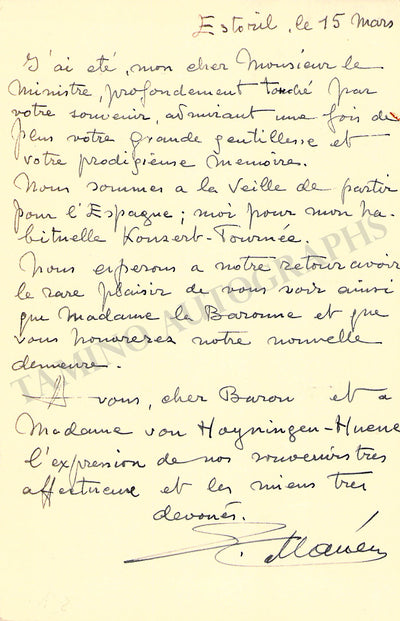 Estoril, le 15 Mars
J'ai eté, mon cher Monsieur le
Ministre, profondement touché par
votre souvenir, admirant une fois de
plus votre grande gentillesse et
votre prodigieuse memoire.
Nous sommes a la veille de partir
pour l'Espagne; moi pour mon ha-
bituelle Konzert-Tournée.
Nous esperons a notre retour avoir
le rare plaisir de vous voir ainsi
que Madame la Baronne et que
vous honorerez notre nouvelle
demeure.
A vous, cher Baron et a
Madame von Hoyningen-Huene
l'expression de nos souvenirs tres
affectueux et les miens tres
devoués.
Manén
TAMINO AUTOGRAPHS